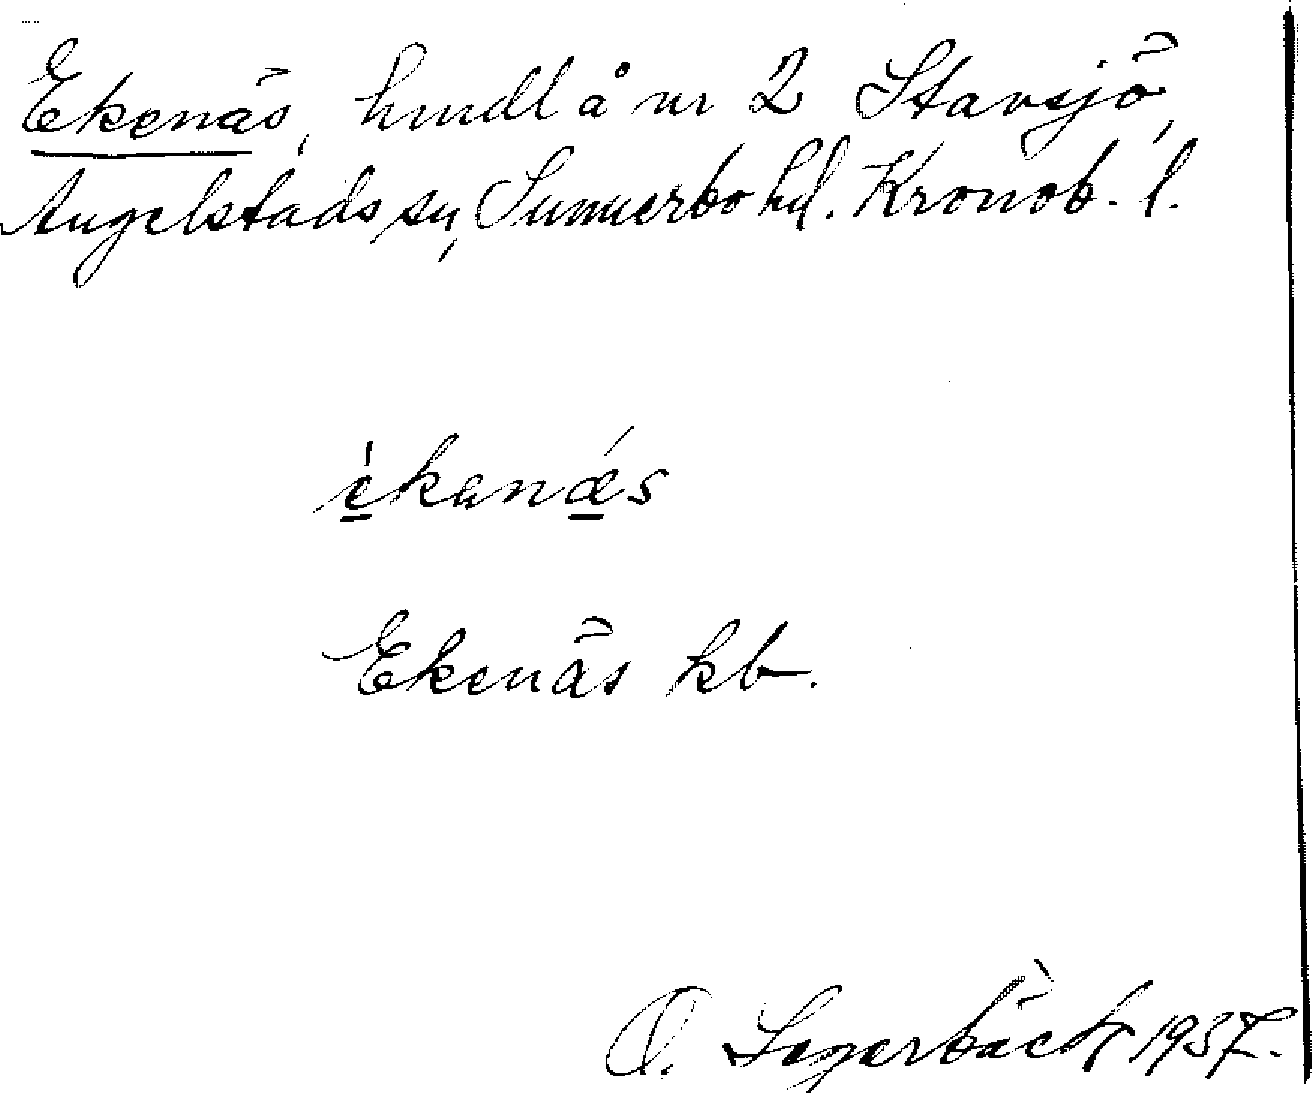 Ekenäs, hmdl å nr 2 Stavsjö,
Angelstads sn, Sunnerbo hd. Kronob. l.
èkanǽs
Ekenäs kb.
O. Segerbäck 1937.